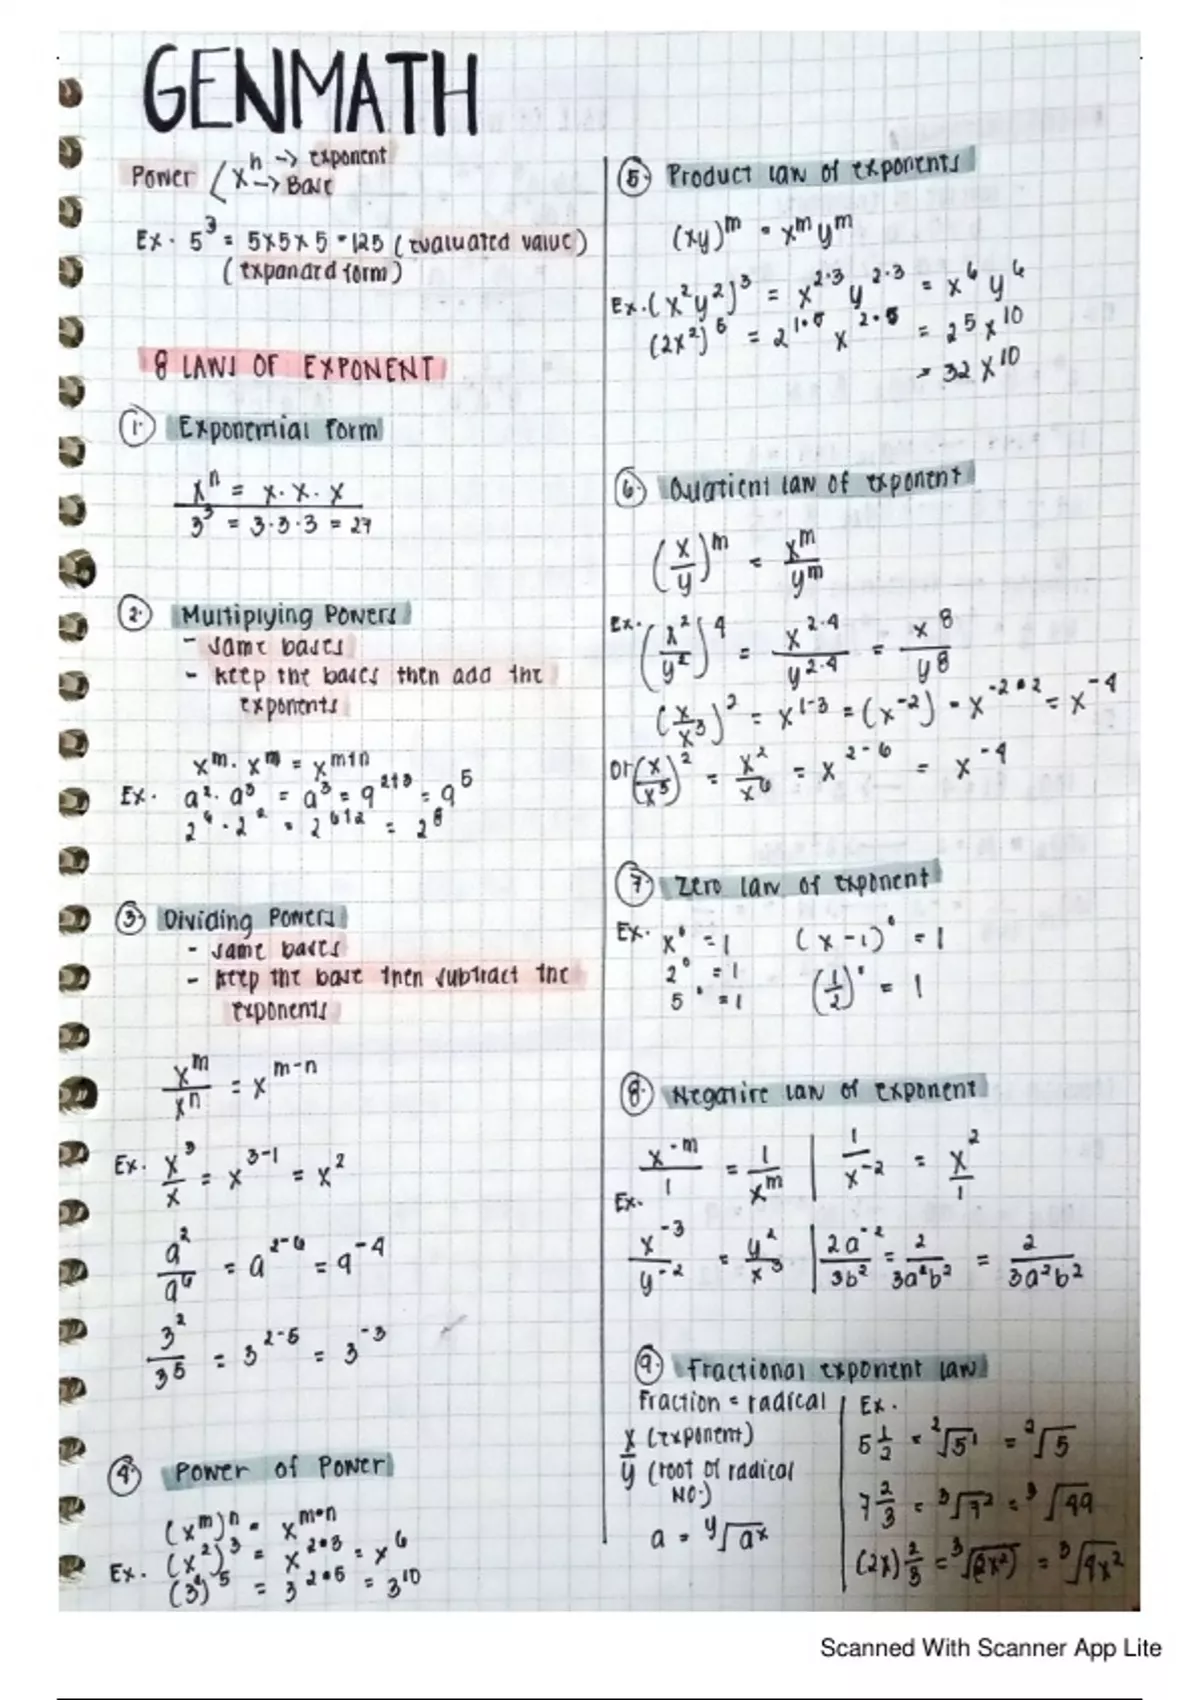 GENMATH
Power ( xⁿ -> exponent
-> Base
Ex. 5³ = 5x5x5 = 125 (evaluated value)
(expanded form)
8 LAWS OF EXPONENT
1. Exponential form
xⁿ = x·x·x
3³ = 3·3·3 = 27
2. Multiplying Powers
- same bases
- keep the bases then add the
exponents
x^m · x^m = x^m+n
Ex. a² · a³ = a³ = a^2+3 = a⁵
2⁶ · 2² = 2^6+2 = 2⁸
3. Dividing Powers
- same bases
- keep the base then subtract the
exponents
x^m/x^n = x^m-n
Ex. x³/x = x^3-1 = x²
a²/a⁶ = a^2-6 = a^-4
3²/3⁵ = 3^2-5 = 3^-3
4. Power of Power
(x^m)^n = x^m·n
Ex. (x²)³ = x^2·3 = x⁶
(3²)⁵ = 3^2·5 = 3^10
5. Product law of exponents
(xy)^m = x^m y^m
Ex. (x²y²)³ = x^2·3 y^2·3 = x⁶ y⁶
(2x²)⁵ = 2^1·5 x^2·5 = 2⁵ x^10
= 32 x^10
6. Quatient law of exponent
(x/y)^m = x^m/y^m
Ex. (x²/y²)⁴ = x^2·4/y^2·4 = x⁸/y⁸
(x/x³)² = x^1-3 = (x^-2) = x^-2·2 = x^-4
or (x/x³)² = x²/x⁶ = x^2-6 = x^-4
7. Zero law of exponent
Ex. x⁰ = 1 (x-1)⁰ = 1
2⁰ = 1 (1/2)⁰ = 1
5⁰ = 1
8. Negative law of exponent
x^-m/1 = 1/x^m | 1/x^-2 = x²/1
Ex.
x^-3/y^-2 = y²/x³ | 2a^-2/3b² = 2/3a²b² = 2/3a²b²
9. Fractional exponent law
Fraction = radical | Ex.
x (exponent)
y (root of radical
NO.)
a = y√a^x
5 1/2 = ²√5¹ = ²√5
7 2/3 = ³√7² = ³√49
(2x) 2/3 = ³√(2x²) = ³√4x²
Scanned With Scanner App Lite